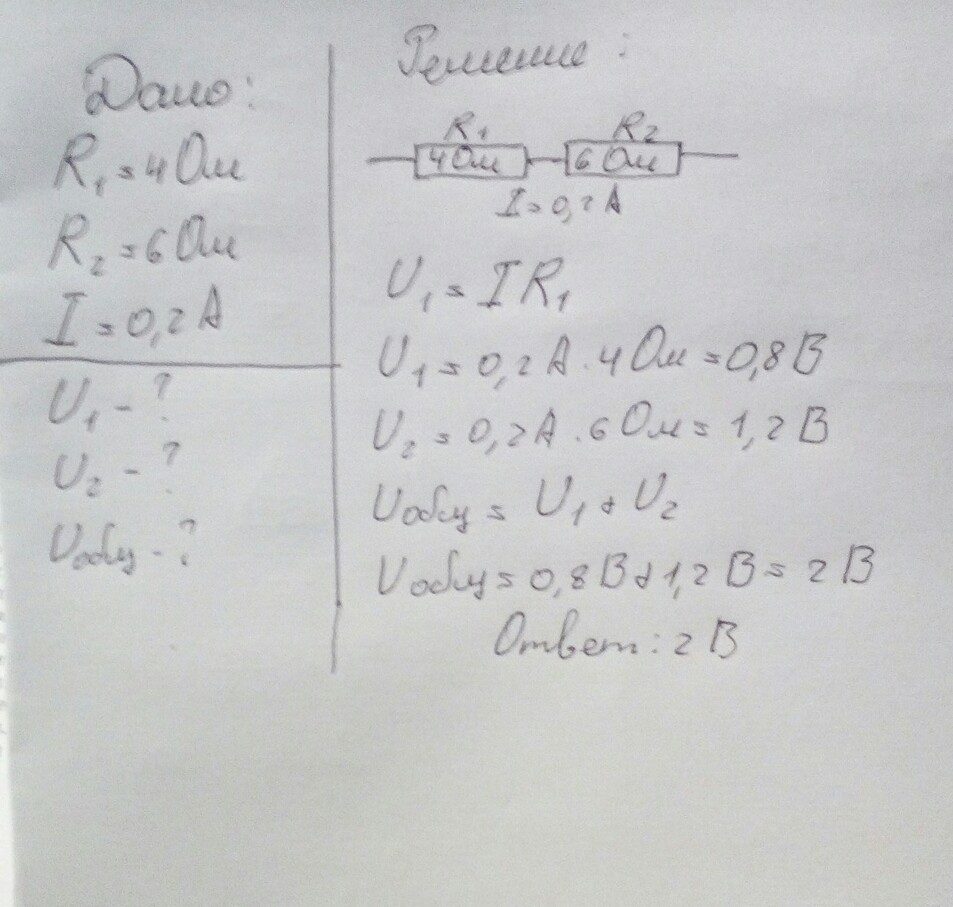 Дано:
R₁ = 4 Ом
R₂ = 6 Ом
I = 0,2 А
U₁ - ?
U₂ - ?
Uобщ - ?
Решение:
R₁ R₂
4 Ом 6 Ом
I = 0,2 А
U₁ = I R₁
U₁ = 0,2 А · 4 Ом = 0,8 В
U₂ = 0,2 А · 6 Ом = 1,2 В
Uобщ = U₁ + U₂
Uобщ = 0,8 В + 1,2 В = 2 В
Ответ: 2 В